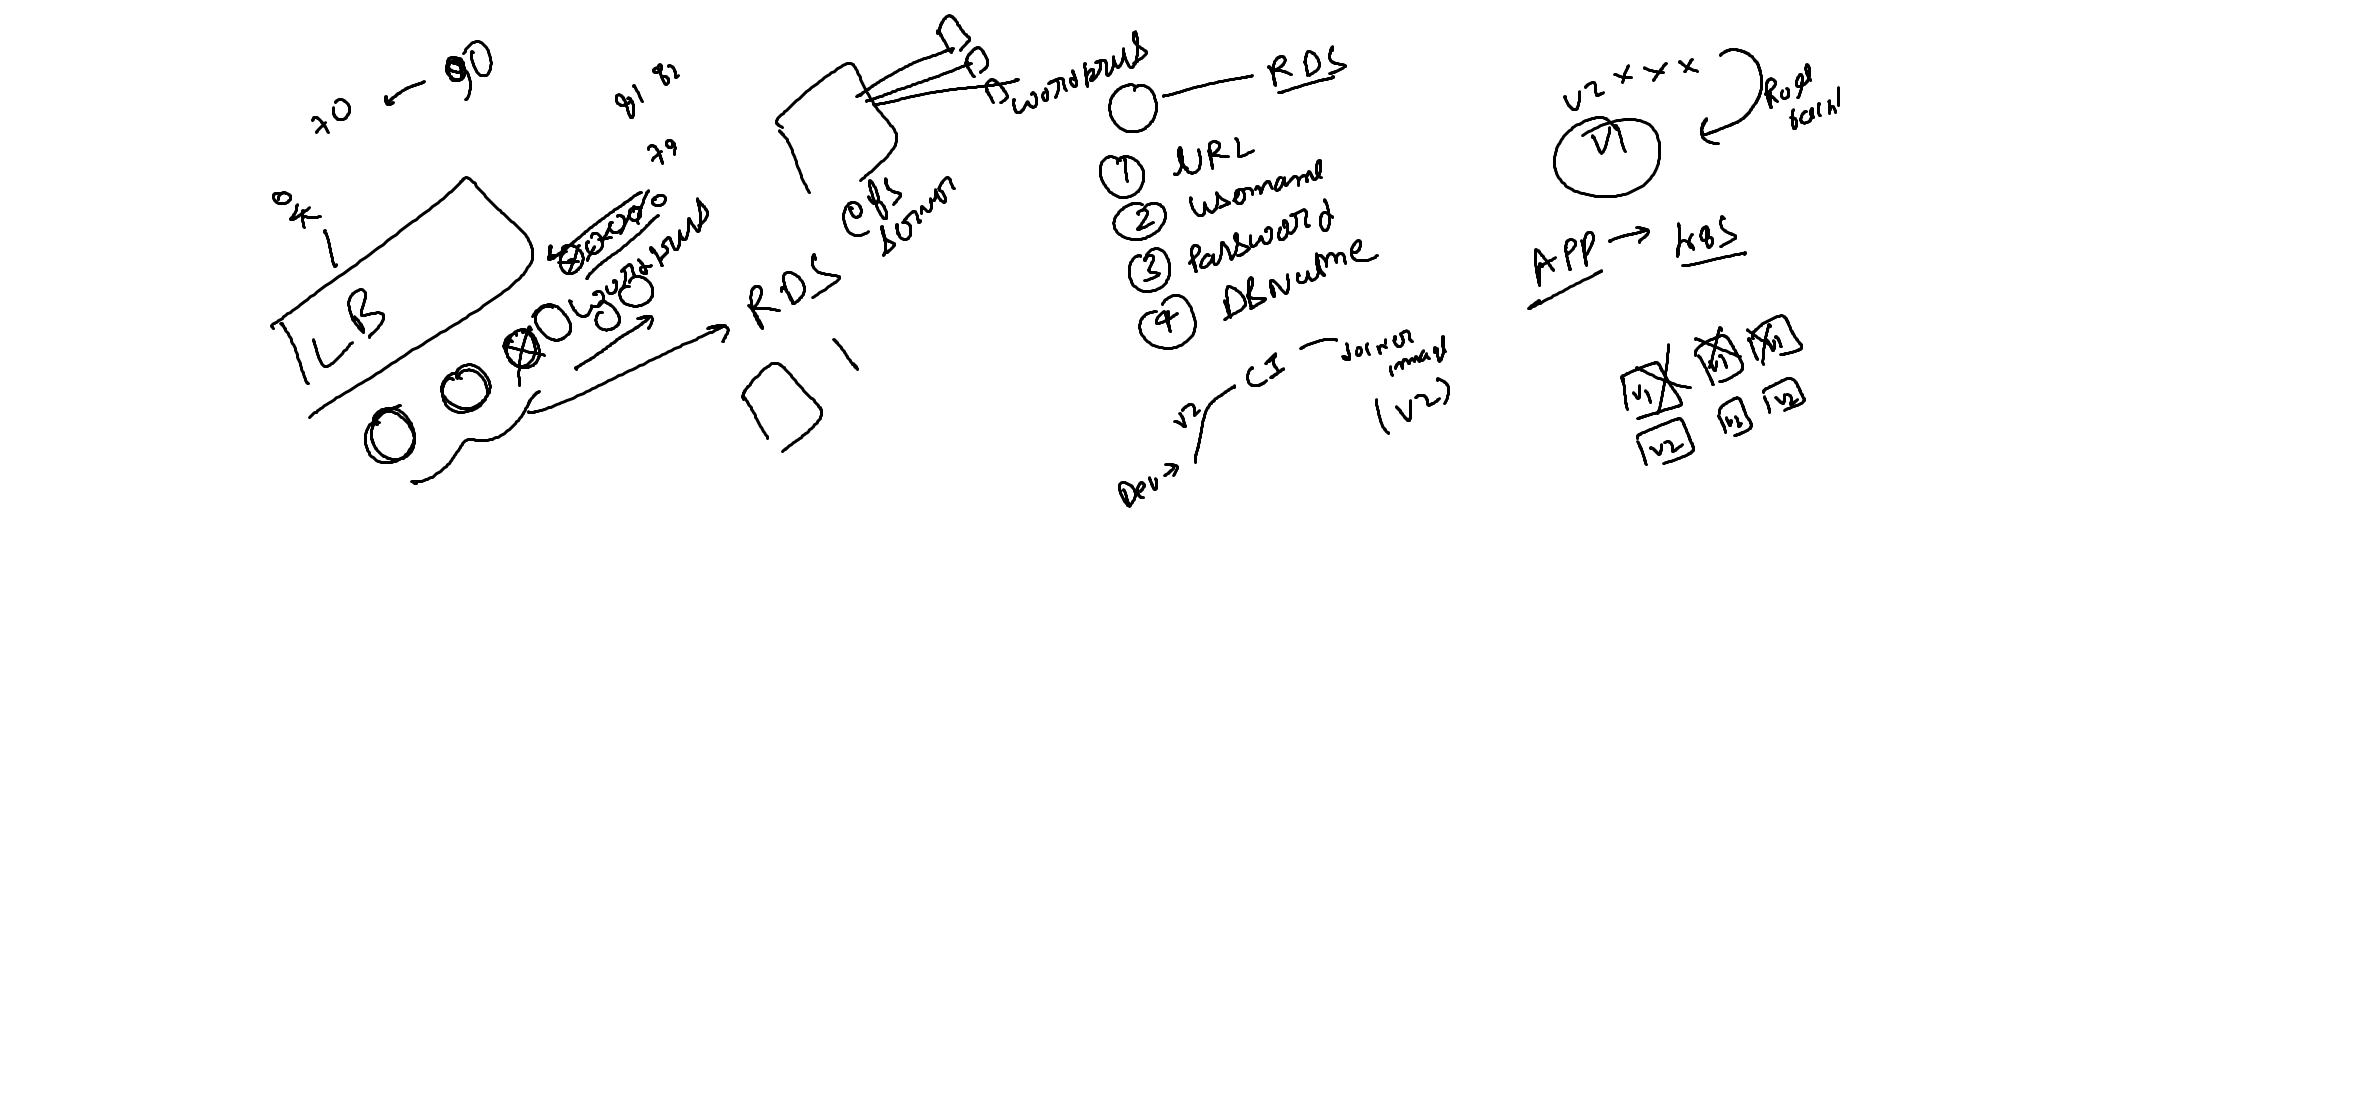 70 ← 90
81 82
79
LB
wordpress
RDS
efs
server
wordpress
RDS
① URL
② username
③ Password
④ DBName
Dev →
v2
CI
docker
image
(v2)
v2 x x x
V1
Roll
back
APP → k8s
v1 v1 v1
v2 v2 v2